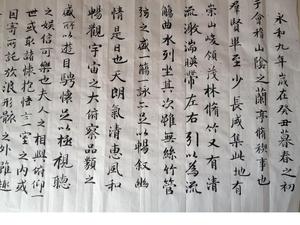 永和九年歲在癸丑暮春之初
于會稽山陰之蘭亭脩稧事也
群賢畢至少長咸集此地有
崇山峻領茂林脩竹又有清
流激湍暎帶左右引以為流
觴曲水列坐其次雖無絲竹管
弦之盛一觴一詠亦足以暢敘幽
情是日也天朗氣清惠風和
暢仰觀宇宙之大俯察品類之
盛所以遊目騁懷足以極視聽
之娛信可樂也夫人之相與俯仰一
世或取諸懷抱悟言一室之內或
因寄所託放浪形骸之外雖趣